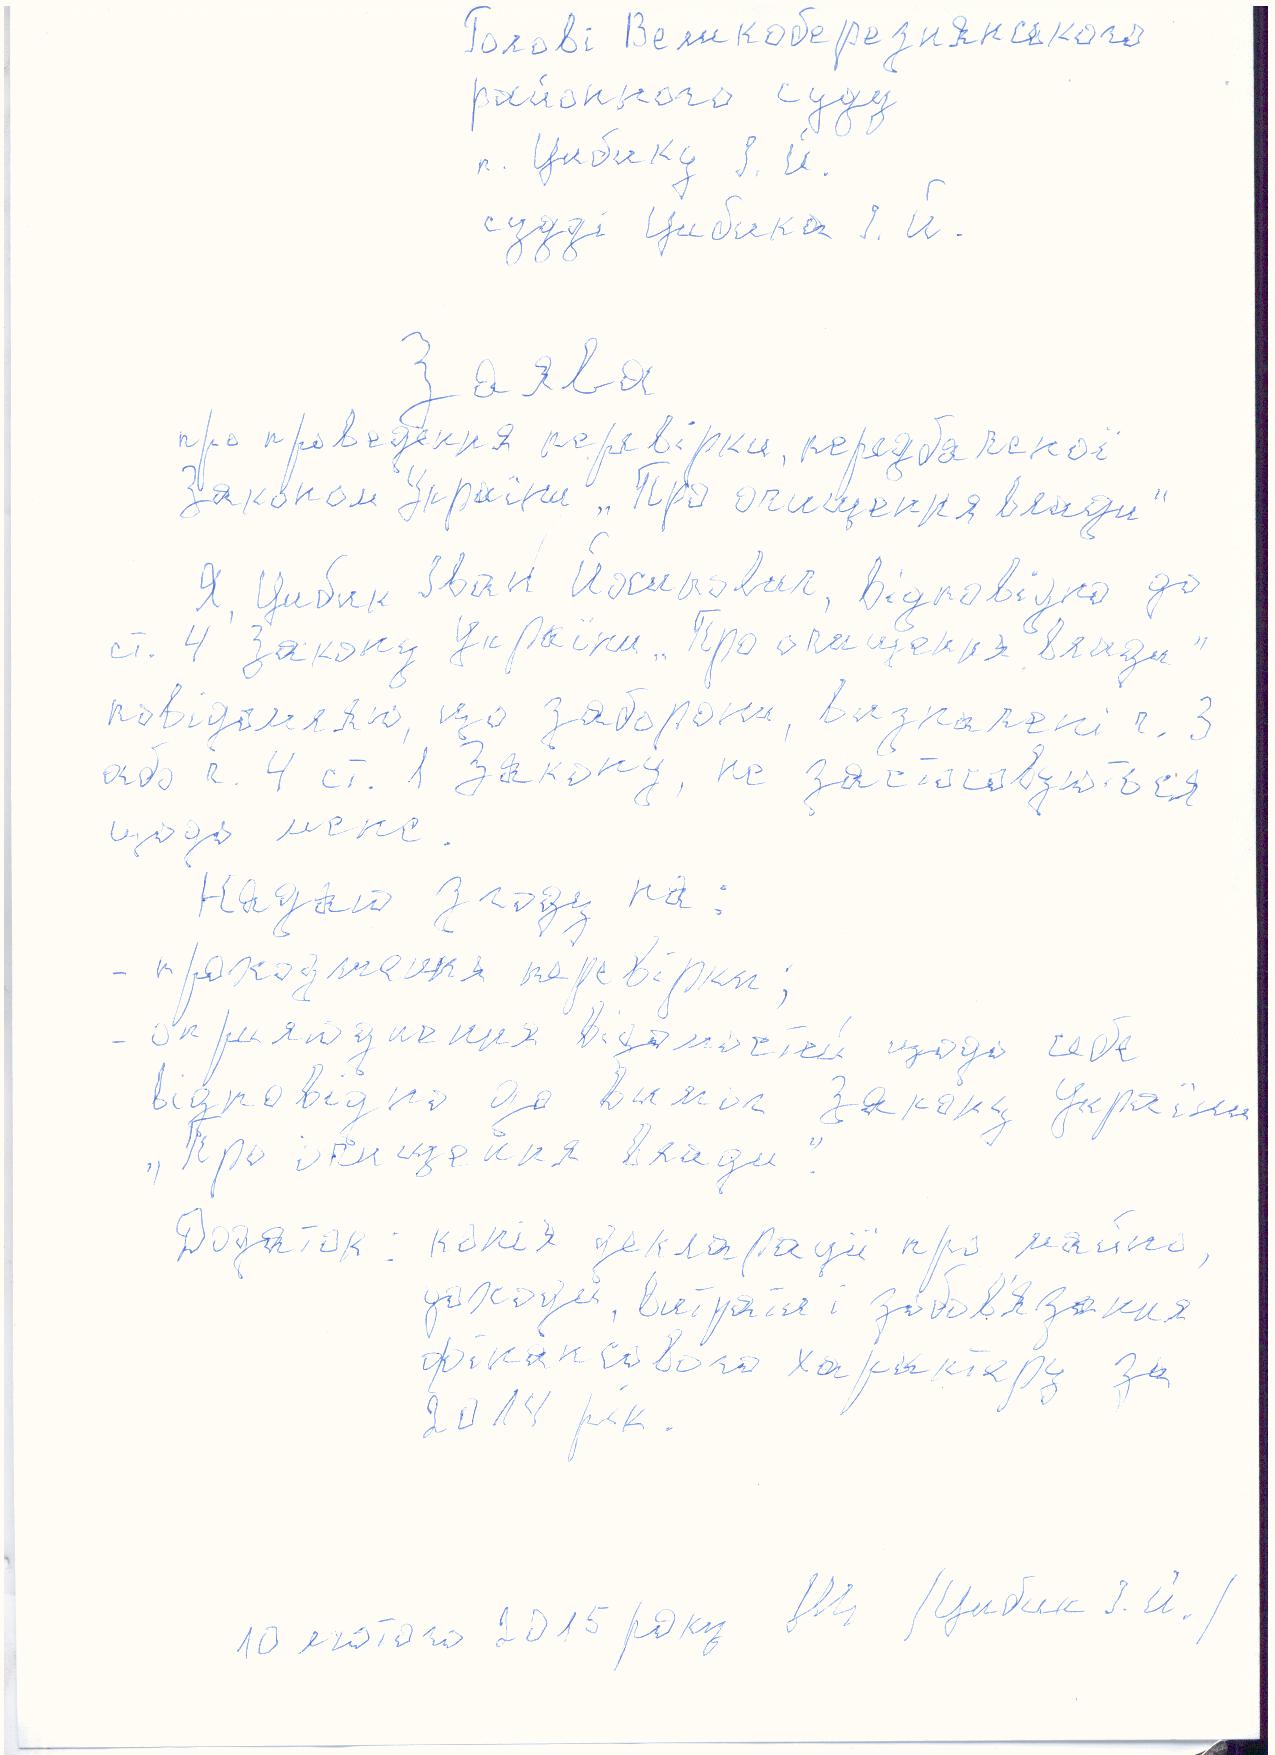 Голові Великоберезнянського
районного суду
п. Цибику І. Й.
судді Цибика І. Й.
Заява
про проведення перевірки, передбаченої
Законом України „Про очищення влади"
Я, Цибик Іван Йосипович, відповідно до
ст. 4 Закону України „Про очищення влади"
повідомляю, що заборони, визначені ч. 3
або ч. 4 ст. 1 Закону, не застосовуються
щодо мене.
Надаю згоду на:
- проходження перевірки;
- оприлюднення відомостей щодо себе
відповідно до вимог Закону України
„Про очищення влади".
Додаток: копія декларації про майно,
доходи, витрати і зобов'язання
фінансового характеру за
2014 рік.
10 лютого 2015 року /Цибик І. Й./